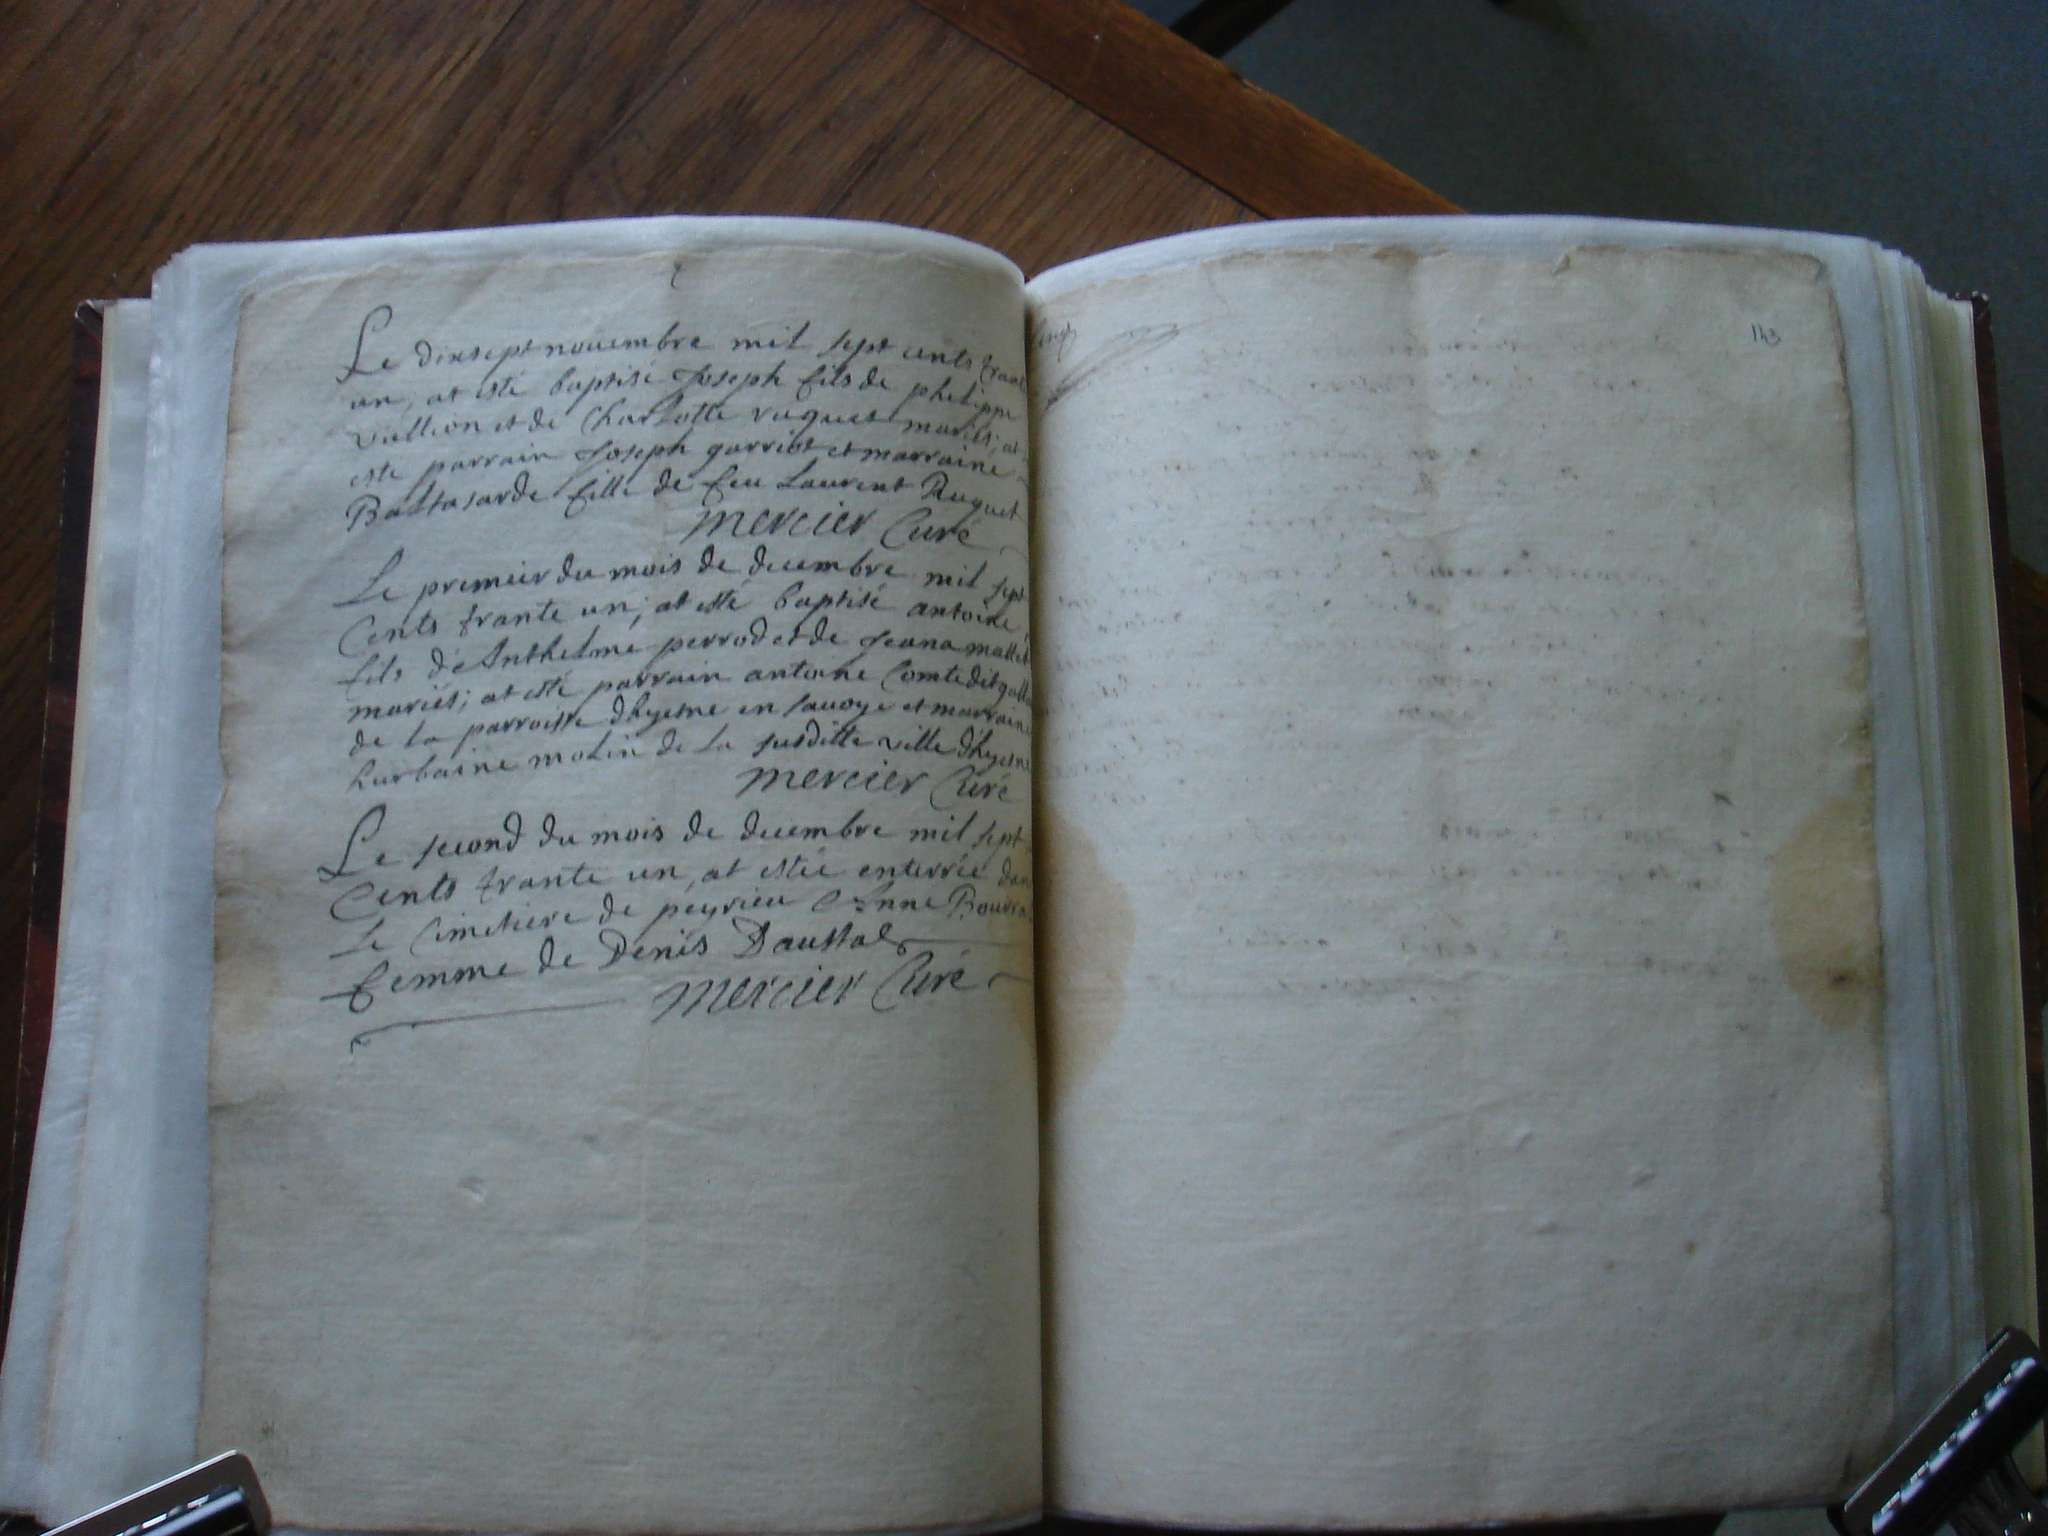 Le dixsept nouembre mil sept cents trante
un, at esté baptisé Joseph fils de philippe
vallion et de Charlotte ruquet mariés; at
esté parrain Joseph garriot et marraine
Baltasarde fille de feu Laurent Ruquet
Mercier Curé
Le premeir du mois de decembre mil sept
Cents trante un; at esté baptisé antoine
fils de Anthelme perrod et de Jeana mallet
mariés; at esté parrain antoine Comte dit
de la parroisse dhyesne en sauoye et marraine
hurbaine molin de la susditte ville dhyesne
Mercier Curé
Le second du mois de decembre mil sept
Cents trante un, at estée enterrée dans
Le Cimetiere de peyrieu Anne
femme de Denis Daustal
Mercier Curé
143